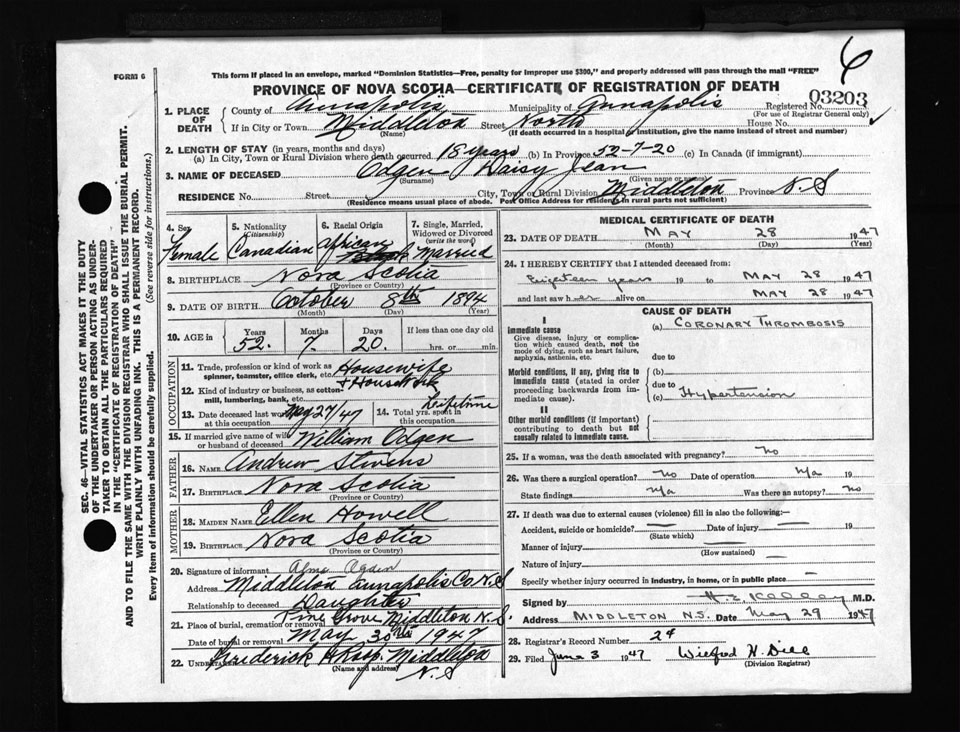 6
FORM 6
This form if placed in an envelope, marked "Dominion Statistics—Free, penalty for improper use $300," and properly addressed will pass through the mail "FREE"
PROVINCE OF NOVA SCOTIA—CERTIFICATE OF REGISTRATION OF DEATH
SEC. 46—VITAL STATISTICS ACT MAKES IT THE DUTY
OF THE UNDERTAKER OR PERSON ACTING AS UNDER-
TAKER TO OBTAIN ALL THE PARTICULARS REQUIRED
IN THE "CERTIFICATE OF REGISTRATION OF DEATH"
AND TO FILE THE SAME WITH THE DIVISION REGISTRAR WHO SHALL ISSUE THE BURIAL PERMIT.
WRITE PLAINLY WITH UNFADING INK. THIS IS A PERMANENT RECORD.
Every item of information should be carefully supplied. (See reverse side for instructions.)
1. PLACE OF DEATH County of Annapolis Municipality of Annapolis Registered No. 03203
(For use of Registrar General only)
If in City or Town Middleton Street North House No.
(Name) (If death occurred in a hospital or institution, give the name instead of street and number)
2. LENGTH OF STAY (in years, months and days)
(a) In City, Town or Rural Division where death occurred 18 years (b) In Province 52-7-20 (c) In Canada (if immigrant)
3. NAME OF DECEASED Odgen Daisy Jean
(Surname) (Given name or names)
RESIDENCE No. Street City, Town or Rural Division Middleton Province N.S
(Residence means usual place of abode. Post Office Address for residents in rural parts not sufficient)
4. Sex Female
5. Nationality (Citizenship) Canadian
6. Racial Origin African
7. Single, Married, Widowed or Divorced (write the word) Married
8. BIRTHPLACE Nova Scotia
(Province or Country)
9. DATE OF BIRTH October 8th 1894
(Month) (Day) (Year)
10. AGE in Years 52. Months 7. Days 20. If less than one day old hrs. or min.
OCCUPATION
11. Trade, profession or kind of work as spinner, teamster, office clerk, etc. Housewife
12. Kind of industry or business, as cotton-mill, lumbering, bank, etc. + Housework
13. Date deceased last worked at this occupation May 27/47 14. Total yrs. spent in this occupation Lifetime
15. If married give name of wife or husband of deceased William Odgen
FATHER
16. Name Andrew Stevens
17. Birthplace Nova Scotia
(Province or Country)
MOTHER
18. MAIDEN NAME Ellen Howell
19. BIRTHPLACE Nova Scotia
(Province or Country)
20. Signature of informant Alma Ogden
Address Middleton Annapolis Co N.S
Relationship to deceased Daughter
21. Place of burial, cremation or removal Pine Grove Middleton N.S.
Date of burial or removal May 30th 1947
22. UNDERTAKER Frederick Middleton
(Name and address) N.S
MEDICAL CERTIFICATE OF DEATH
23. DATE OF DEATH MAY 28 1947
(Month) (Day) (Year)
24. I HEREBY CERTIFY that I attended deceased from:
Eighteen years 19 to MAY 28 1947
and last saw her alive on MAY 28 1947
CAUSE OF DEATH
I
Immediate cause
Give disease, injury or complication which caused death, not the mode of dying, such as heart failure, asphyxia, asthenia, etc.
(a) CORONARY THROMBOSIS
due to
Morbid conditions, if any, giving rise to immediate cause (stated in order proceeding backwards from immediate cause).
(b)
due to
(c) Hypertension
II
Other morbid conditions (if important) contributing to death but not causally related to immediate cause.
25. If a woman, was the death associated with pregnancy? No
26. Was there a surgical operation? No Date of operation N/a 19
State findings N/a Was there an autopsy? No
27. If death was due to external causes (violence) fill in also the following:—
Accident, suicide or homicide? — Date of injury — 19
(State which)
Manner of injury —
(How sustained)
Nature of injury
Specify whether injury occurred in industry, in home, or in public place —
Signed by M.D.
Address MIDDLETON N.S. Date May 29 1947
28. Registrar's Record Number 24
29. Filed June 3 1947 Wilfred H. Dill
(Division Registrar)